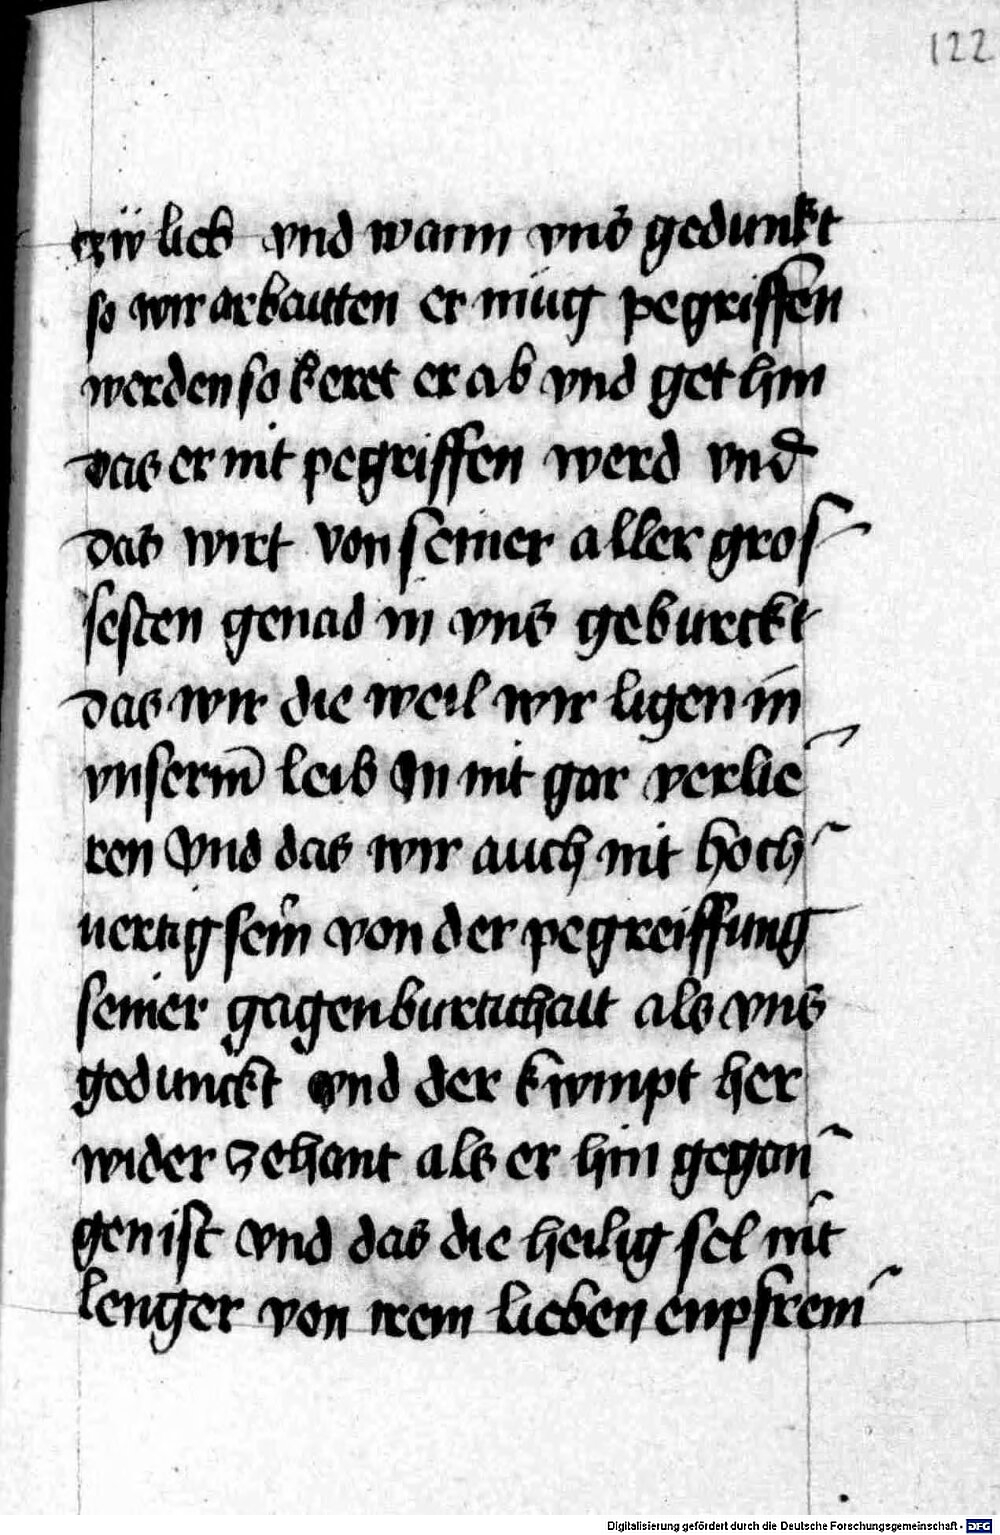 122
czw lieb vnd wann vns gedunkt
so wir arbautten er müg pegriffen
werden so keret er ab vnd get hin
das er nit pegriffen werd vnd
das wirt von seiner aller gros
sesten genad in vns geburckt
das wir die weil wir ligen in
vnserm̄ leib In nit gar verlie
ren Vnd das wir auch nit hoch
uertig sein von der pegreiffung
seiner gagenburtichait als vns
gedunckt vnd der kwmpt her
wider zehant als er hin gegan
gen ist vnd das die heilig sel nit
lenger von irem lieben enpfrem
Digitalisierung gefördert durch die Deutsche Forschungsgemeinschaft - DFG